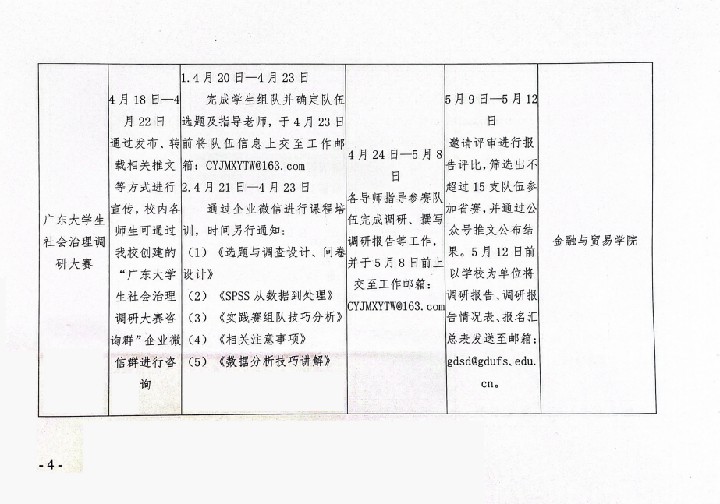 广东大学生
社会治理调
研大赛
4月18日—4
月22日
通过发布、转
载相关推文
等方式进行
宣传，校内各
师生可通过
我校创建的
“广东大学
生社会治理
调研大赛咨
询群”企业微
信群进行咨
询
1.4月20日—4月23日
完成学生组队并确定队伍
选题及指导老师，于4月23日
前将队伍信息上交至工作邮
箱：CYJMXYTW@163.com
2.4月21日—4月23日
通过企业微信进行课程培
训，时间另行通知：
（1）《选题与调查设计、问卷
设计》
（2）《SPSS从数据到处理》
（3）《实践赛组队技巧分析》
（4）《相关注意事项》
（5）《数据分析技巧讲解》
4月24日—5月8
日
各导师指导参赛队
伍完成调研、撰写
调研报告等工作，
并于5月8日前上
交至工作邮箱：
CYJMXYTW@163.com
5月9日—5月12
日
邀请评审进行报
告评比，筛选出不
超过15支队伍参
加省赛，并通过公
众号推文公布结
果。5月12日前
以学校为单位将
调研报告、调研报
告情况表、报名汇
总表发送至邮箱：
gdsd@gdufs.edu.
cn。
金融与贸易学院
- 4 -